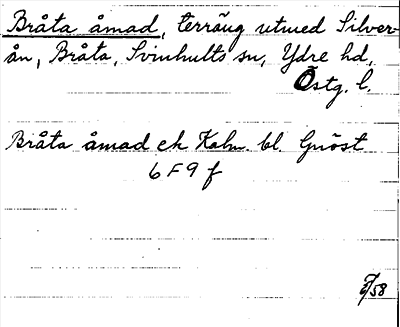 Bråta åmad, terräng utmed Silver-
ån, Bråta, Svinhults sn, Ydre hd,
Östg. l.
Bråta åmad ek Kahn. bl. Gnöst
6 F 9 f
/58